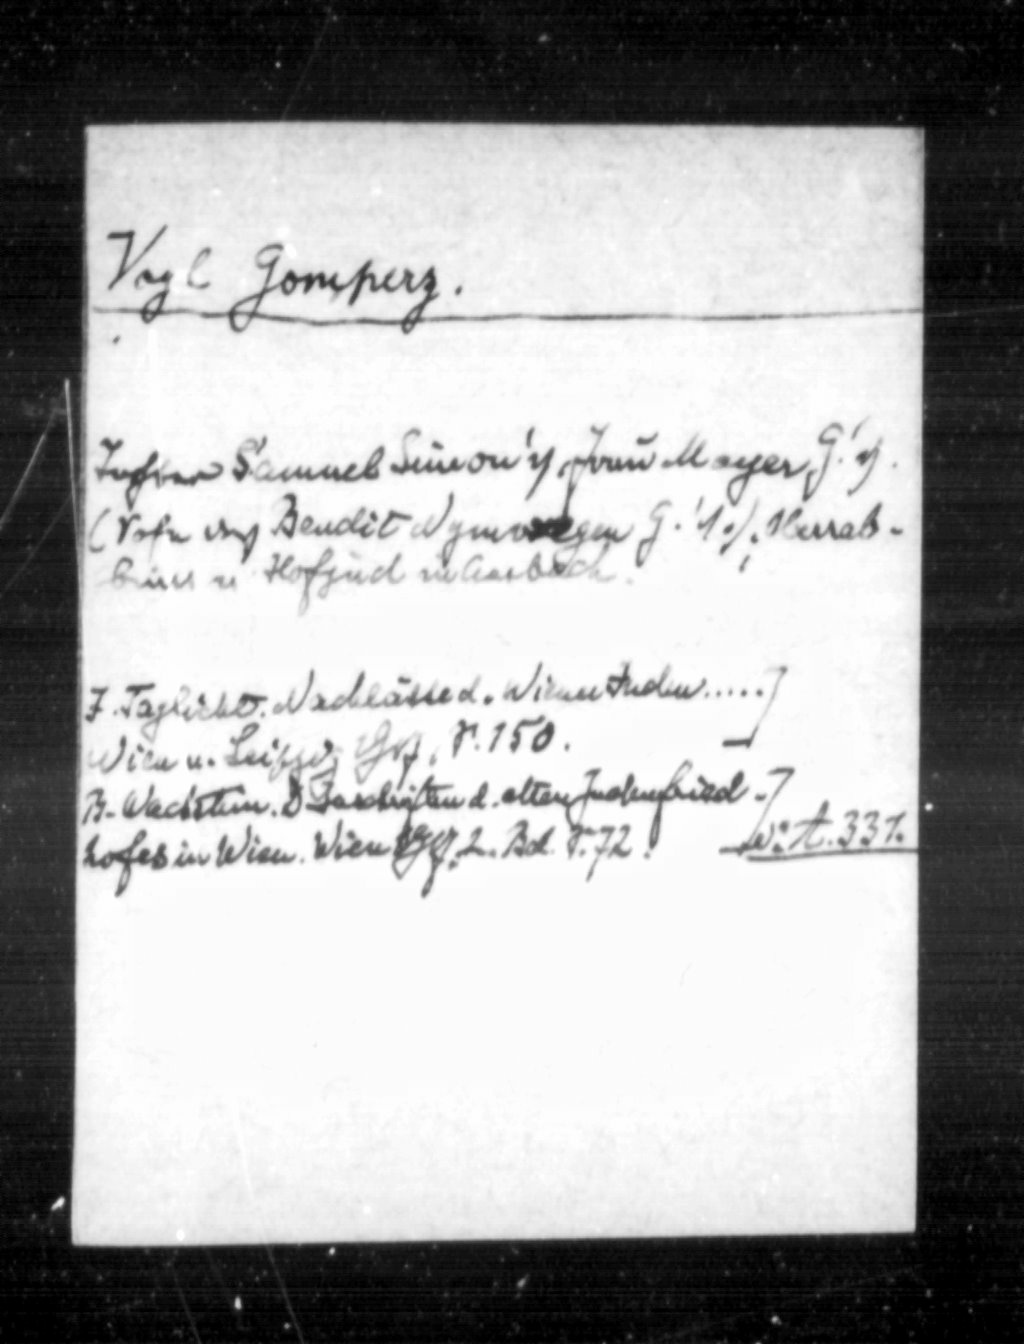 Vogl Gomperz.
Tochter Samuel Simon's, Frau Mayer G.'s.
(Sohn des Bendit Nymwegen G.'s.), Oberrab-
biner u. Hofjud in Ansbach.
I. Taglicht. Nachlässe d. Wiener Juden .....]
Wien u. Leipzig, S. 150.
B. Wachstein. D Inschriften d. alten Judenfried-
hofes in Wien. Wien 2. Bd. S. 72. W: A. 331.